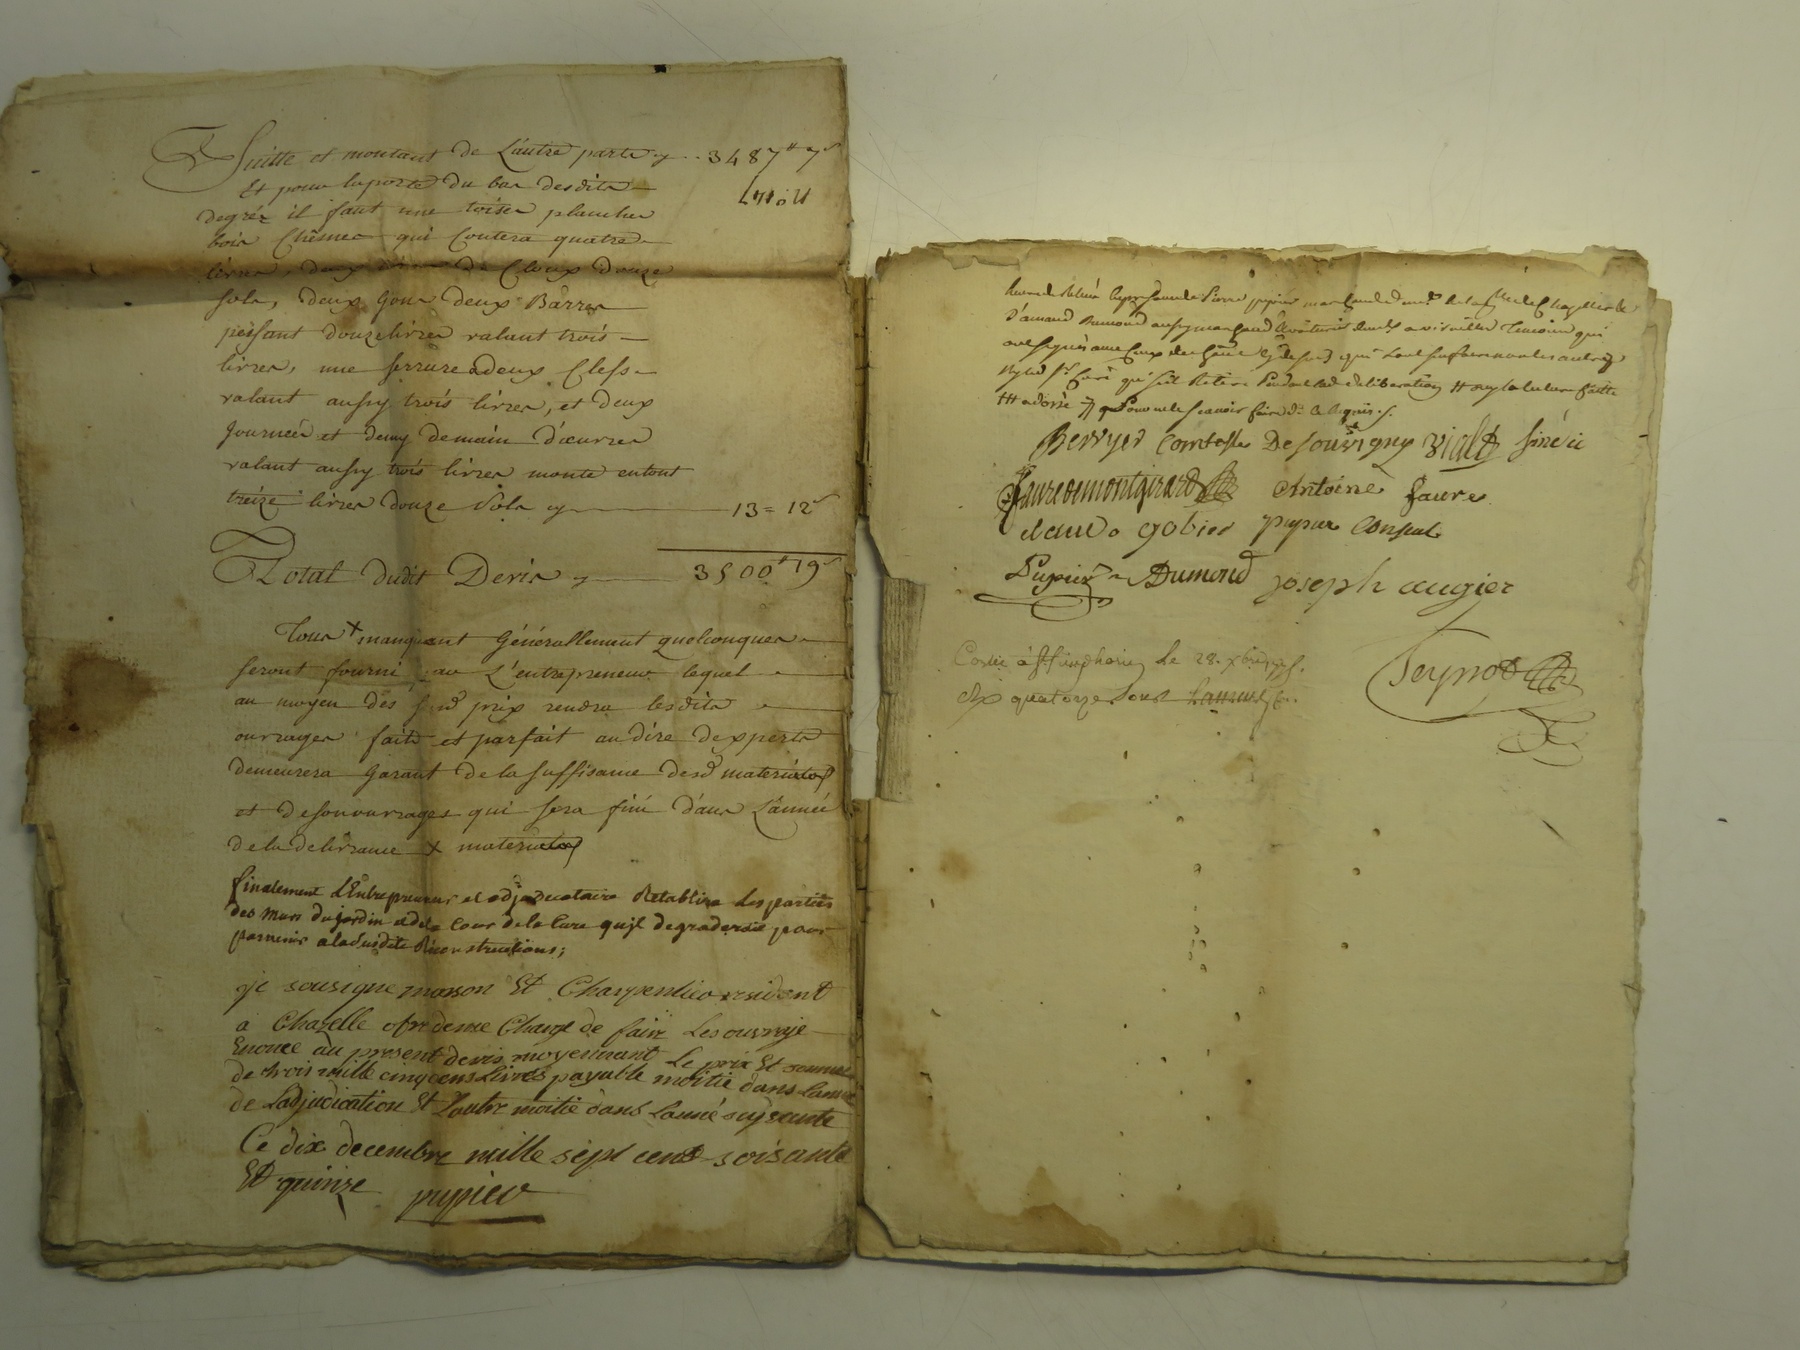 Suitte et montant de L'autre parte cy .. 3487tt 7s
Et pour la porte du bas desdits
degréz il faut une toise plancher
bois Chêsnes qui Coutera quatre
livres, deux livres de Cloux douze
sols, deux gons deux Bârres
peisant douze livres valant trois
livres, une serrure à deux Clefs
valant aussy trois livres, et deux
Journées et demy de main d'œuvres
valant aussy trois livres monte en tout
treize livres douze Sols cy 13 = 12s
Total dudit Devis cy 3500tt 19s
Tous + manquent Générallement quelconques
seront fourni par L'entrepreneur lequel
au moyen des susd prix rendra lesdits
ouvrages faits et parfait au dire d'experts
demeurera Garant de la suffisance desd materiaux
et de son ouvrages qui sera fini dans L'année
de la delivrance + materiaux
finalement L'Entrepreneur et adjudicataire Retablira Les parties
des Murs du jardin et de la Cour de la Cure qu'il degraderoit pour
parvenir a la dusdite Reconstructions;
je sousigne masson Et Charpentier resident
a Chazelle ofre de me Charge de faire Les ouvraje
Enonce au present devis moyennant Le prix Et somme
de trois mille cinq cens Livres payable moitie dans Lanné
de Ladjudication Et Lautre moitie dans Lanné suyvante
Ce dix decembre mille sept cent soisante
Et quinze pupier
Pierre pupier marchand
Dumond aussy marchand temoins qui
ont signés avec ceux des qui l'ont sçu faire non les autres
qui s'est Retiré Pendant lad deliberation
pour ne le scavoir faire de ce Requis
Berryer Comtesse De Souvigny Vialt
fauredemontgirard Antoine faure
claude gobier pupier Consul
Pupier Dumond joseph augier
le 28. xbre 1775.
quatorze sous
Peyrot